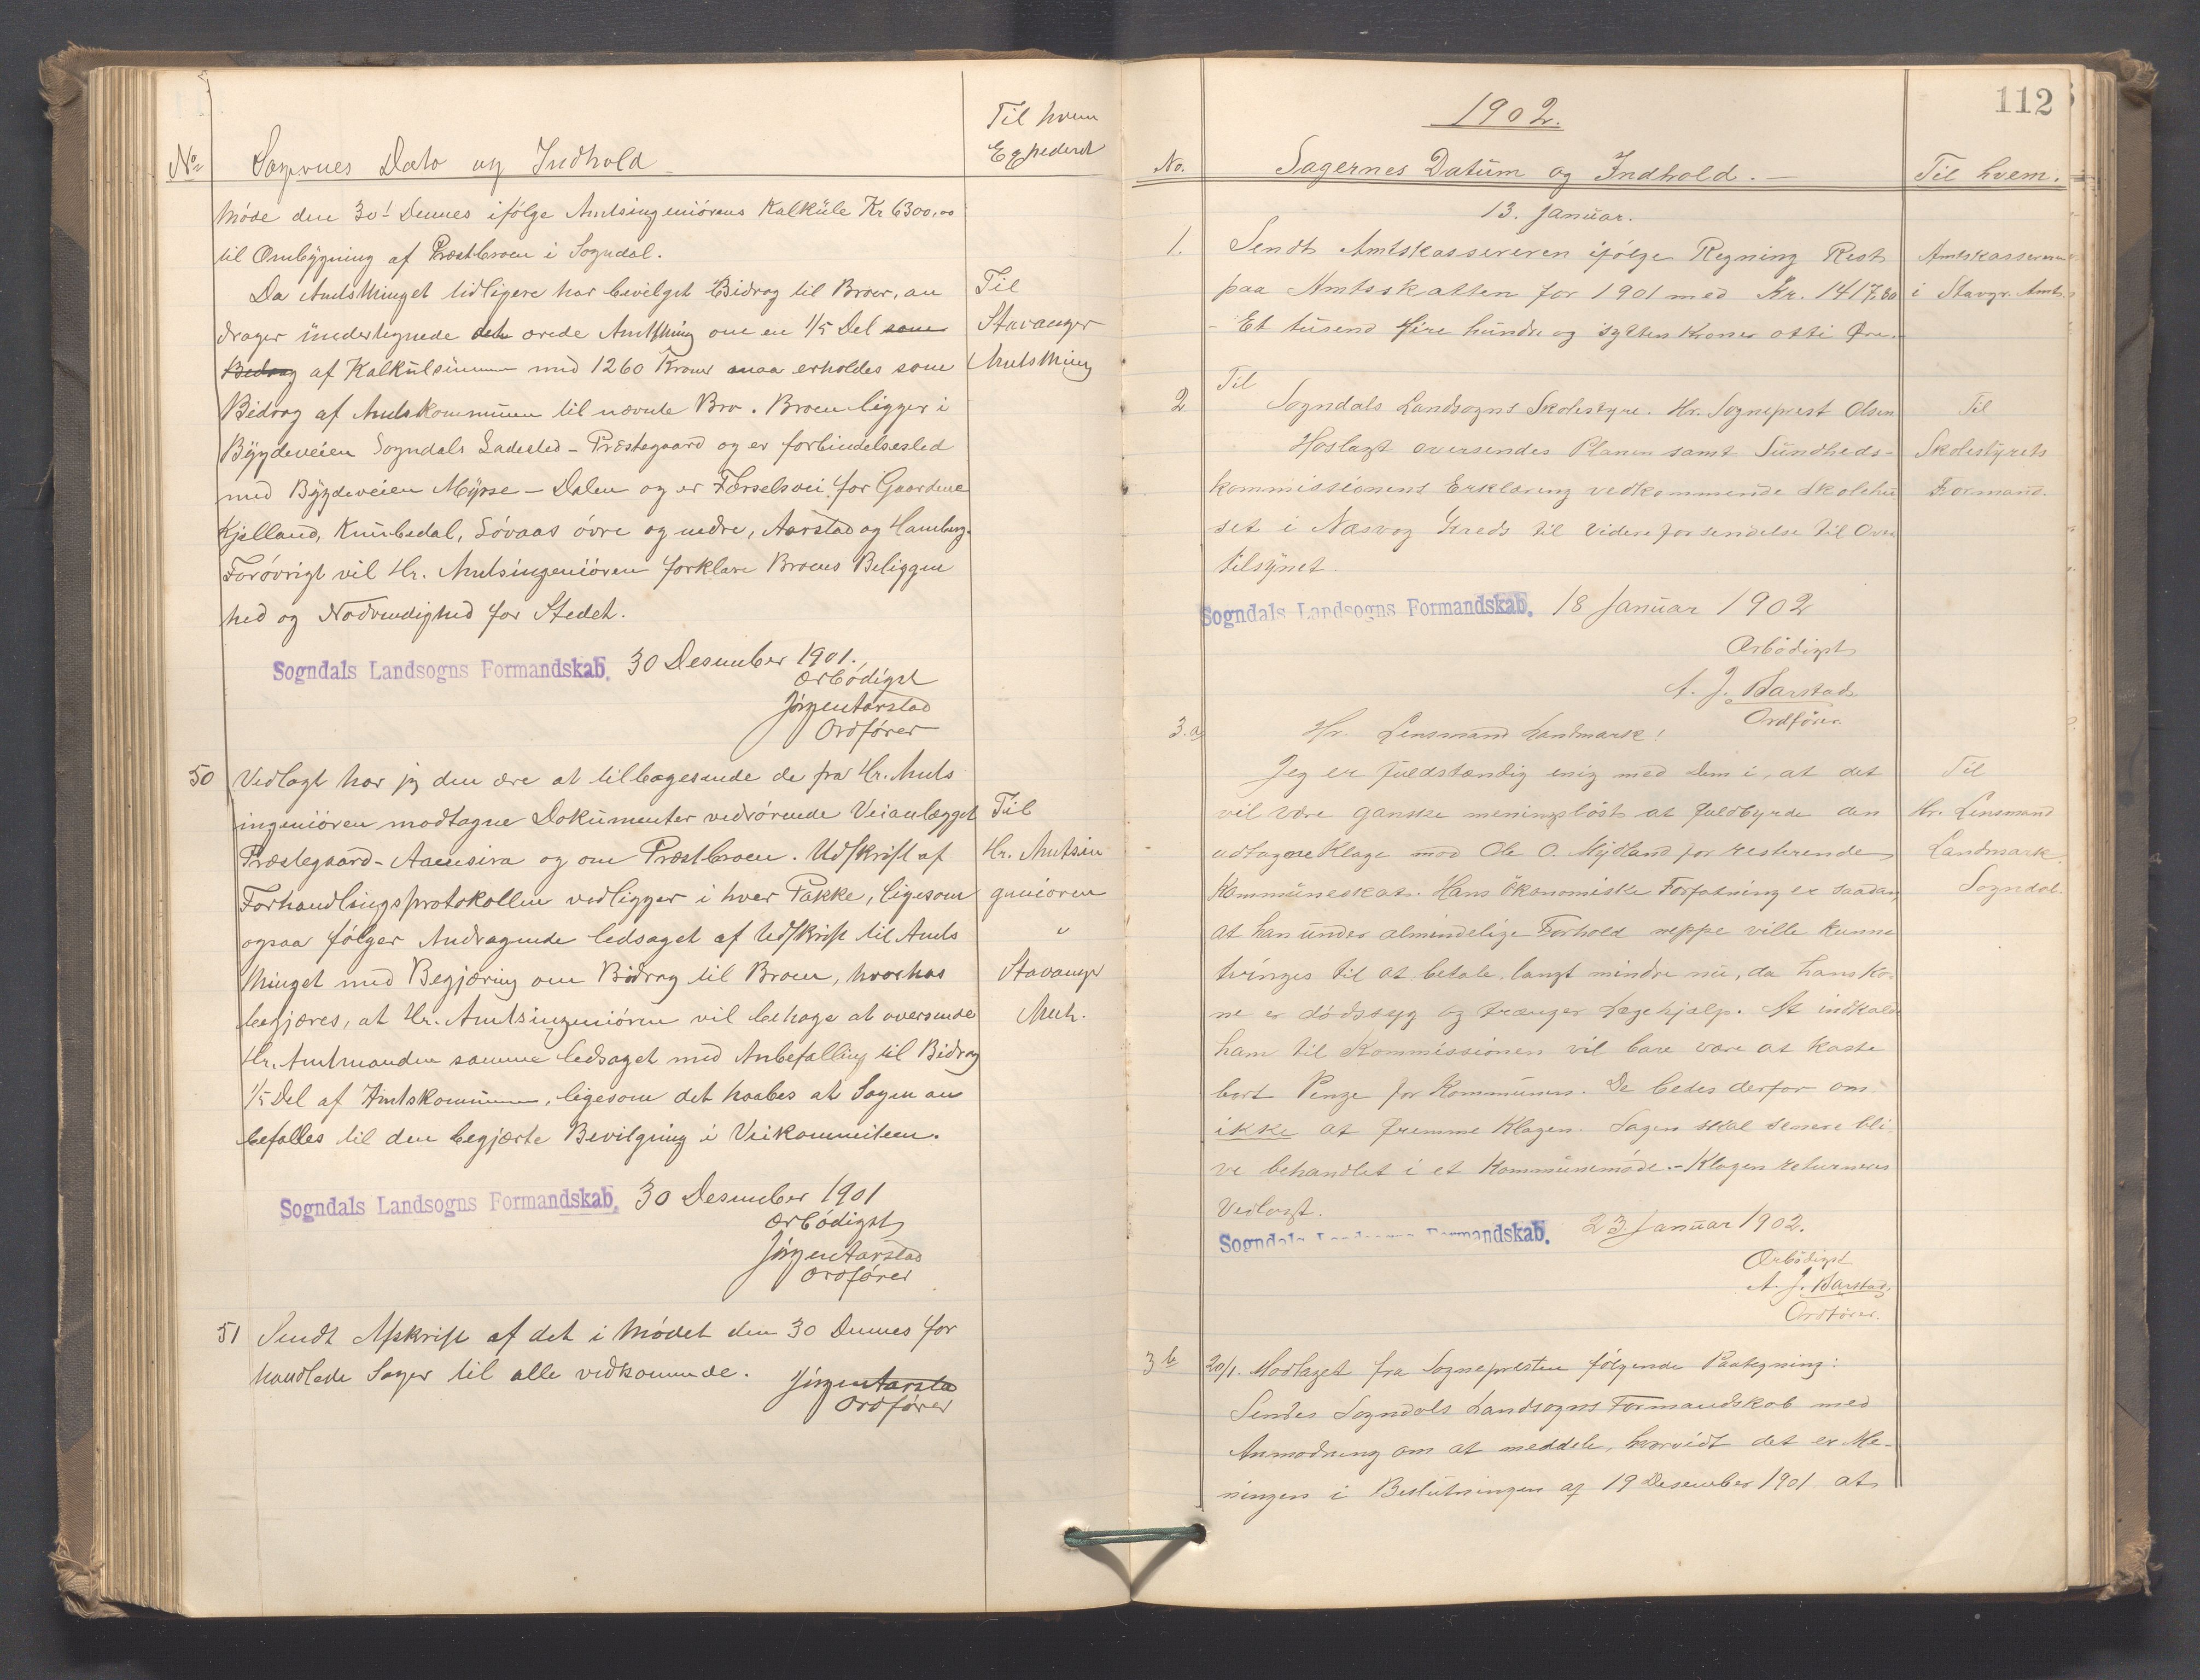 Til hvem
Expederet
No Sagernes Dato og Indhold
Møde den 30te Dennes ifølge Amtsingeniørens Kalkule Kr 6300,00
til Ombygning af Præstbroen i Sogndal.
Da Amtsthinget tidligere har bevilget Bidrag til Broer, an
drager undertegnede det ærede Amtsthing om en 1/5 Del som
Bidrag af Kalkulsummen med 1260 Kroner maa erholdes som
Bidrag af Amtskommunen til nævnte Bro. Broen ligger i
Bygdeveien Sogndals Ladested - Præstegaard og er forbindelsesled
med Bygdeveien Mysse - Dalen og er Færselsvei for Gaardene
Kjelland, Kumbedal, Løvaas øvre og nedre, Aarstad og Hamburg.
Forøvrigt vil Hr. Amtsingeniøren forklare Broens Beliggen
hed og Nødvendighed for Stedet.
Til
Stavanger
Amtsthing
Sogndals Landsogns Formandskab, 30 Desember 1901.
Ærbødigst
Jørgen Aarstad
Ordfører
50 Vedlagt har jeg den ære at tilbagesende de fra Hr. Amts
ingeniøren modtagne Dokumenter vedrørende Veianlægget
Præstegaard - Aaensira og om Præstbroen. Udskrift af
Forhandlingsprotokollen vedligger i hver Pakke, ligesom
ogsaa følger Andragende ledsaget af Udskrift til Amts
thinget med Begjæring om Bidrag til Broen, hvorhos
begjæres, at Hr. Amtsingeniøren vil behage at oversende
Hr. Amtmanden samme ledsaget med Anbefalling til Bidrag
1/5 Del af Amtskommunen, ligesom det haabes at Sagen an
befalles til den begjærte Bevilgning i Veikommiteen.
Til
Hr. Amtsin
geniøren
"
Stavanger
Amt.
Sogndals Landsogns Formandskab, 30 Desember 1901
Ærbødigst
Jørgen Aarstad
Ordfører
51 Sendt Afskrift af det i Mødet den 30 Dennes for
handlede Sager til alle vedkomende.
Jørgen Aarstad
Ordfører
112
1902.
No. Sagernes Datum og Indhold. - Til hvem.
13. Januar.
1. Sendt Amtskassereren ifølge Regning Rest
paa Amtsskatten for 1901 med Kr. 1417,80
- Et tusend fire hundre og sytten Kroner otti Øre.
Amtskassereren
i Stavgr. Amt.
2 Til
Sogndals Landsogns Skolestyre. Hr. Sogneprest Olsen
Hoslagt oversendes Planen samt Sundheds-
kommissionens Erklæring vedkommende Skolehu
set i Næsvog Kreds til videre forsendelse til Over
tilsynet.
Til
Skolestyrets
Formand.
Sogndals Landsogns Formandskab, 18 Januar 1902
Ærbødigst
A. J. Barstad
Ordfører.
3.a) Hr. Lensmand Landmark!
Jeg er fuldstændig enig med Dem i, at det
vil være ganske meningsløst at fuldbyrde den
udtagne Klage mod Ole O. Mydland for resterende
Kommuneskat. Hans økonomiske Forfatning er saadan,
at han under almindelige Forhold neppe ville kunne
tvinges til at betale, langt mindre nu, da hans Ko-
ne er dødssyg og trænger Lægehjælp. At indkalde
ham til Kommissionen vil bare være at kaste
bort Penge for Kommunen. De bedes derfor om
ikke at fremme Klagen. Sagen skal senere bli
ve behandlet i et Kommunemøde. - Klagen returneres
Vedlagt.
Til
Hr. Lensmand
Landmark.
Sogndal.
Sogndals Landsogns Formandskab, 23 Januar 1902.
Ærbødigst
A. J. Barstad,
Ordfører.
3b 20/1. Modtaget fra Sognepresten følgende Paategning:
Sendes Sogndals Landsogns Formandskab med
Anmodning om at meddele, hvorvidt det er Me-
ningen i Beslutningen af 19 Desember 1901 at